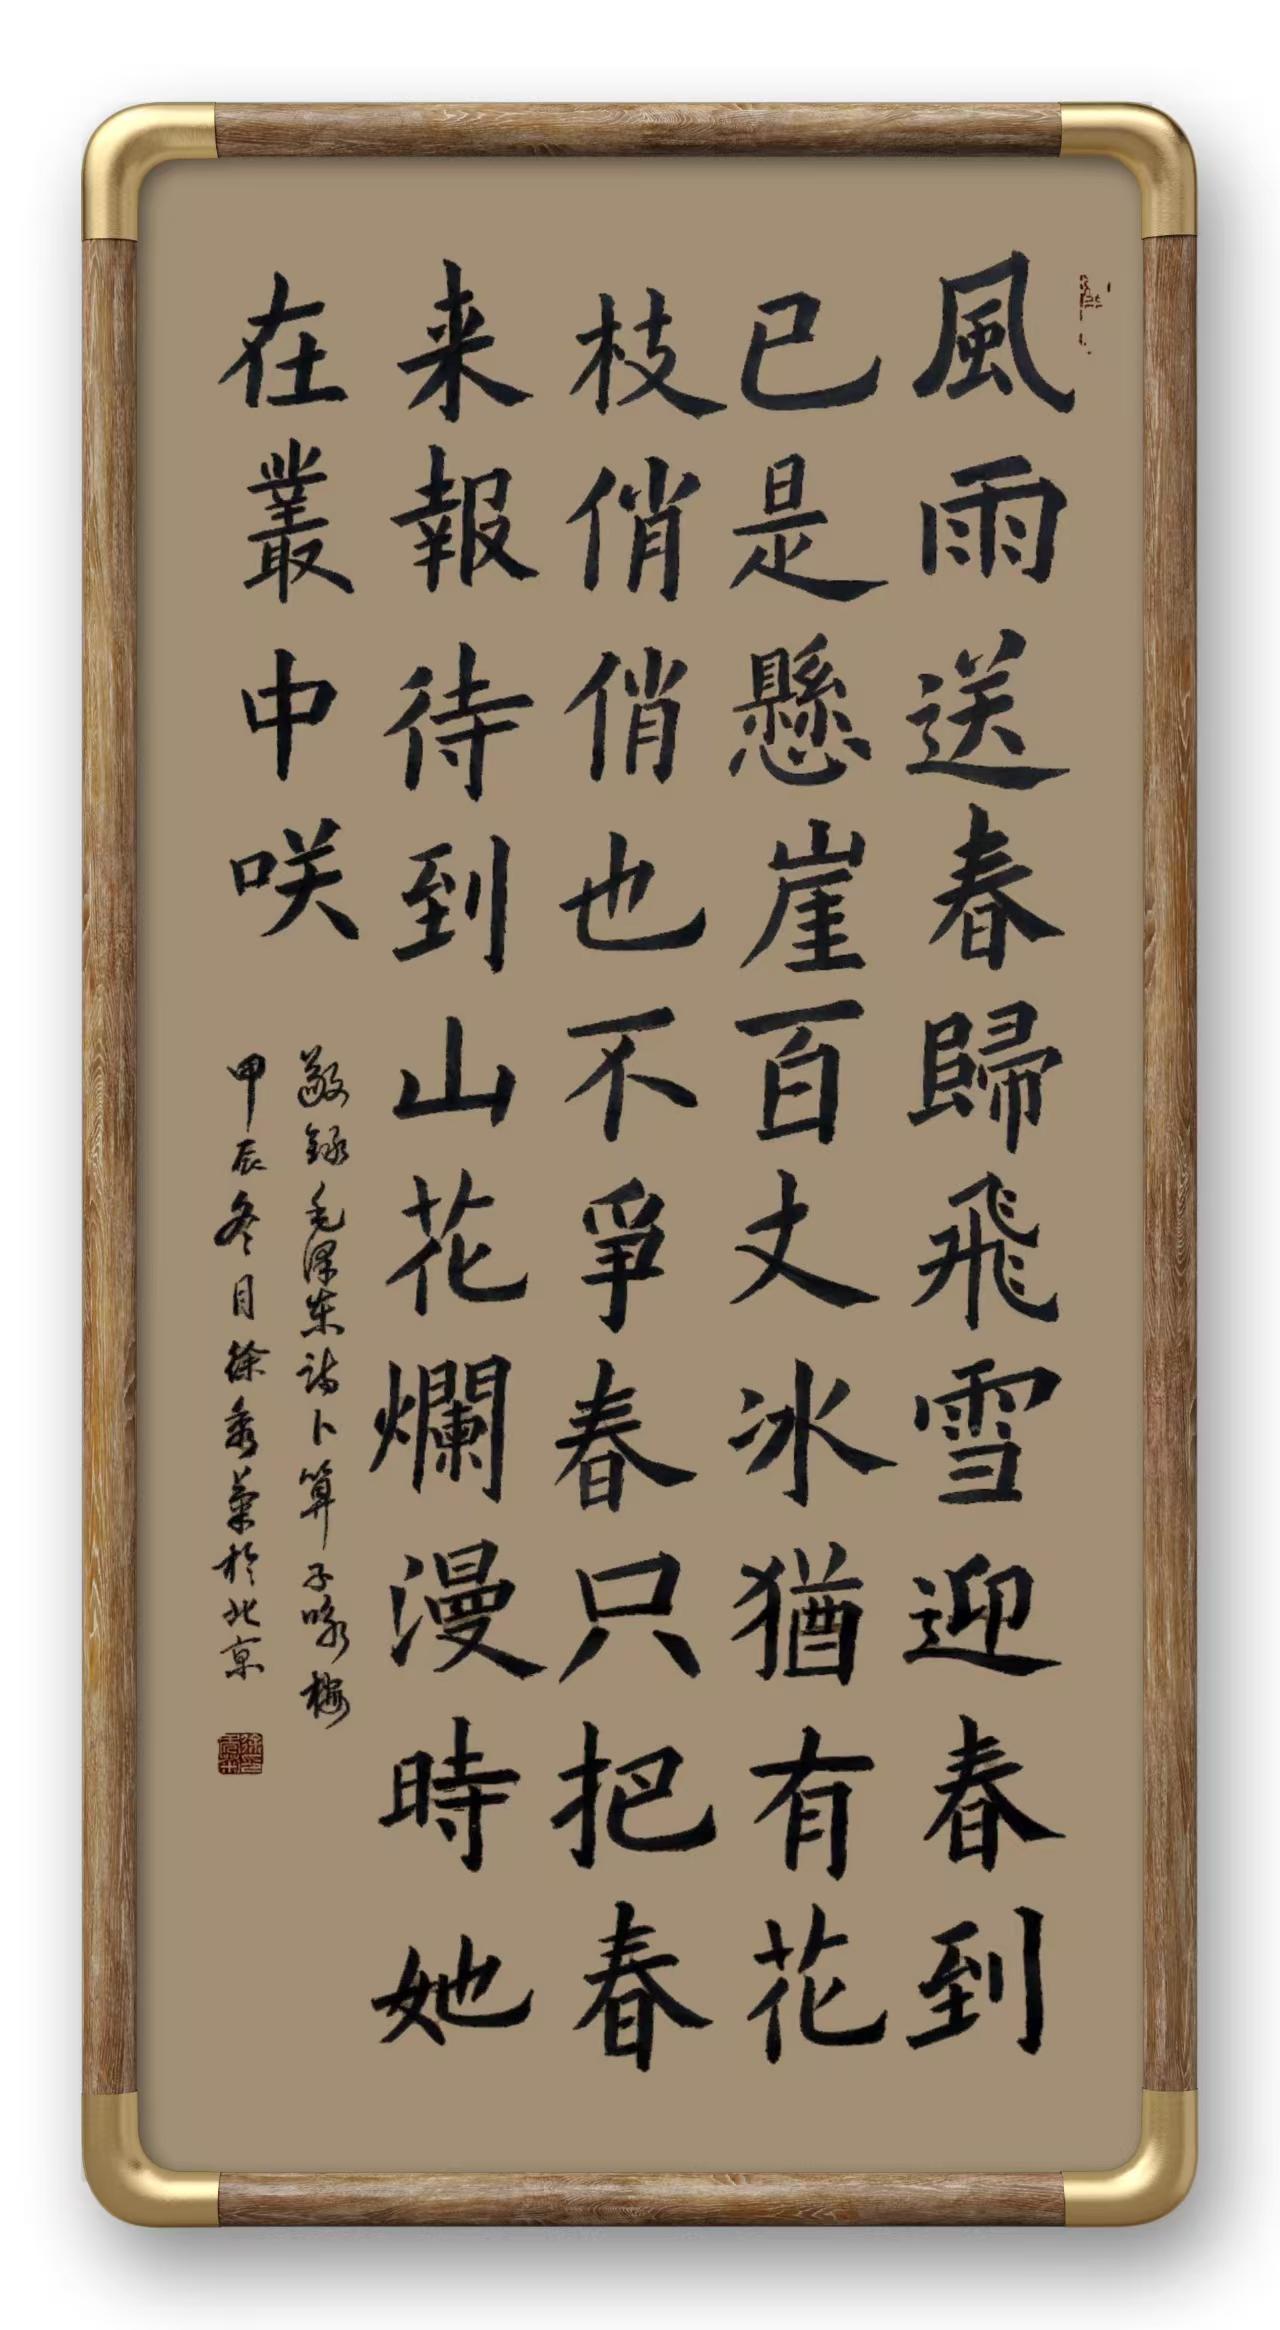 風雨送春歸飛雪迎春到
已是懸崖百丈冰猶有花
枝俏俏也不爭春只把春
来報待到山花爛漫時她
在叢中咲
敬錄毛澤东詩卜算子咏梅
甲辰冬月徐秀菊於北京